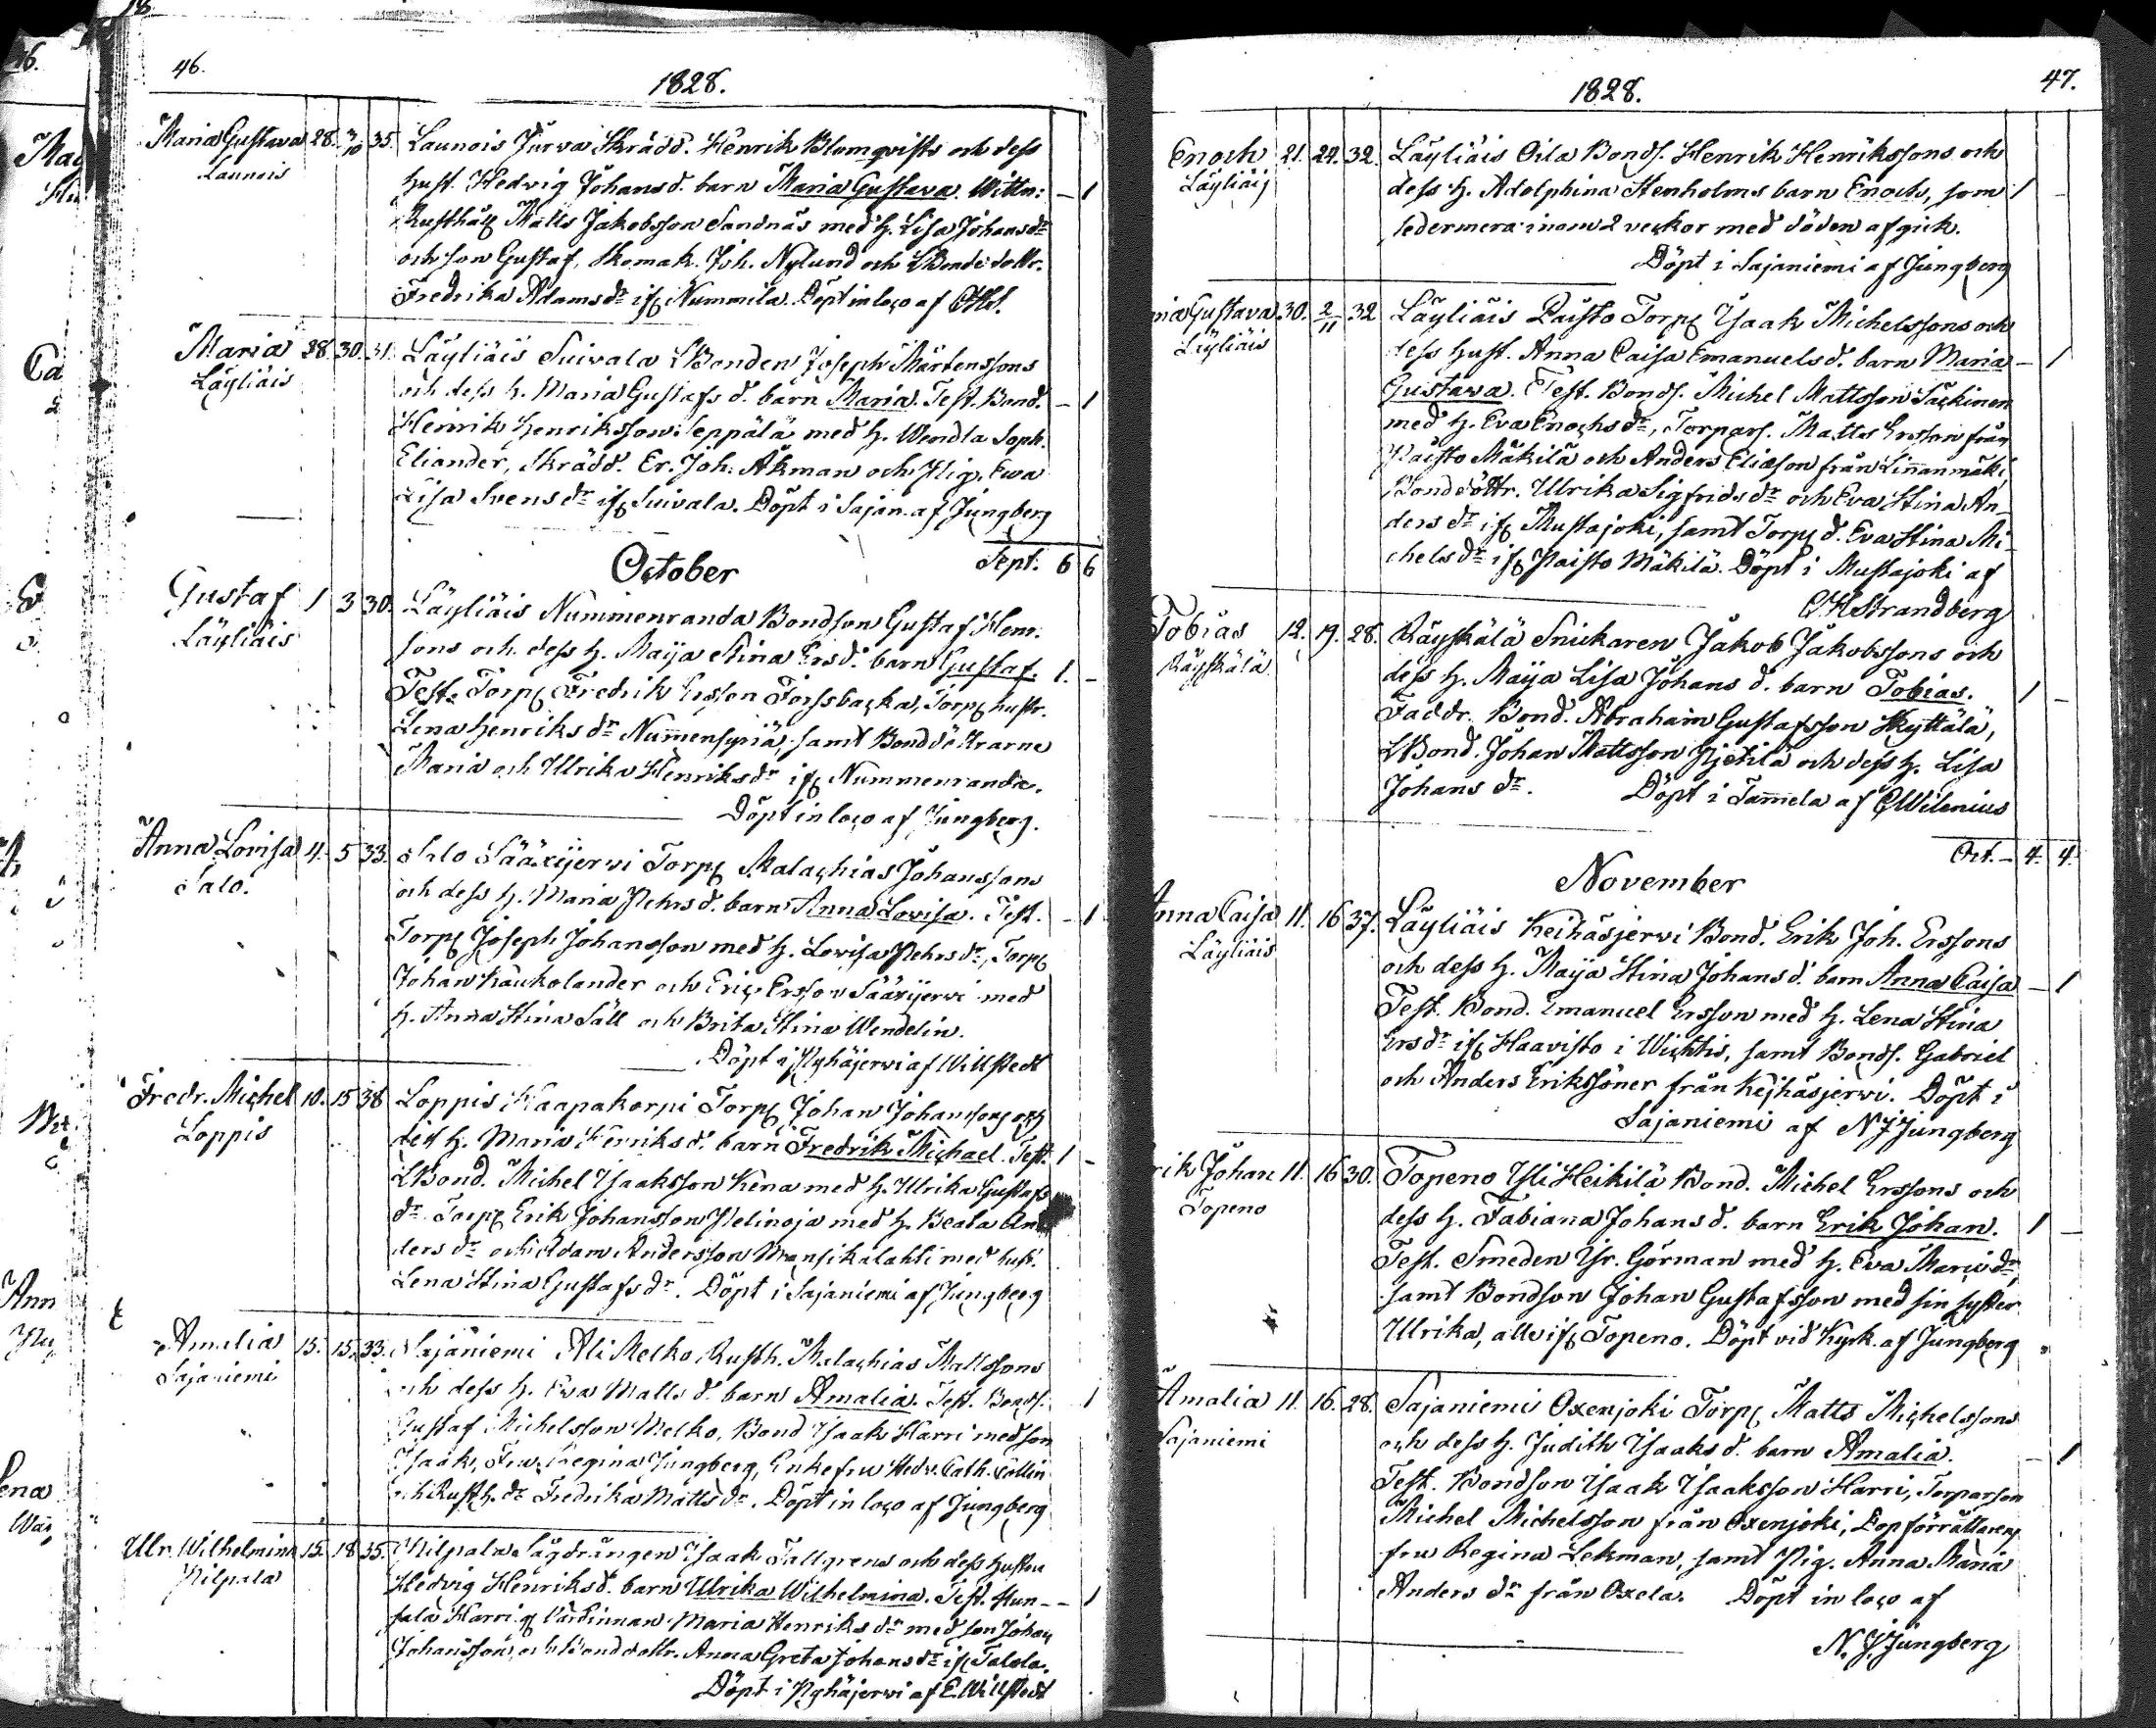 46.
1828.
Maria Gustava 28. 3/10 35. Launois Jurva Skrädd. Henrik Blomqvists och dess
Launois
hust. Hedvig Johansd. barn Maria Gustava. Wittn: – 1
Rusthåll Matts Jakobsson Sandnäs med h. Lisa Johansdr
och son Gustaf, Skomak. Joh. Nylund och LBonde dottr.
Fredrika Adamsdr ifr Nummila. Döpt in loco af
Maria 28. 30. 31. Läyliäis Suivala LBonden Joseph Mårtenssons
Läyliäis
och dess h. Maria Gustafsd. barn Maria. Test. Bond. – 1
Henrik Henriksson Seppälä med h. Wendla Soph.
Eliander, Skrädd. Er. Joh. Åkman och Pig. Ewa
Lisa Svensdr ifr Suivala. Döpt i Sajan. af Jungberg
Sept. 6 6
October
Gustaf 1 3 30. Läyliäis Nummenranda Bondson Gustaf Henr.
Läyliäis
sons och dess h. Maija Stina Ersd. barn Gustaf. 1. –
Test. Torp Fredrik Ersson Forssbacka, Torp hustr.
Lena Henriksdr Nummensyriä, samt Bonddöttrarne
Maria och Ulrika Henriksdr ifr Nummenranda.
Döpt in loco af Jungberg.
Anna Lovisa 4. 5 33. Salo Sääxijerwi Torp Malachias Johanssons
Salo.
och dess h. Maria Pehrsd. barn Anna Lovisa. Test. – 1
Torp Joseph Johansson med h. Lovisa Pehrsdr, Torp
Johan Kaukolander och Eric Ersson Sääxijerwi med
h. Anna Stina Säll och Brita Stina Wendelin.
Döpt i Pyhäjerwi af Willstedt
Fredr. Michel 10. 15 38 Loppis Haapakorpi Torp Johan Johanssons och
Loppis
dess h. Maria Henriksd. barn Fredrik Michael. Test. 1 –
LBond. Michel Isaaksson Kena med h. Ulrika Gustafs
dr. Torp Erik Johansson Pelinoja med h. Beata An
dersdr och Adam Andersson Mansikalahti med hust.
Lena Stina Gustafsdr. Döpt i Sajaniemi af Jungberg
Amalia 15. 15. 33. Sajaniemi Ali Melko Rusth. Malachias Mattssons
Sajaniemi
och dess h. Eva Mattsd. barn Amalia. Test. Bonds. 1
Gustaf Michelsson Melko, Bond Isaak Harri med son
Isaak, Fru Regina Jungberg, Enkefru Hedv. Cath. Collin
och Rusth. dr Fredrika Mattsdr. Döpt in loco af Jungberg
Ulr. Wilhelmina 15. 18 35. Pilpala Sågdrängen Isaak Tallgrens och dess hustru
Pilpala
Hedvig Henriksd. barn Ulrika Wilhelmina. Test. – – 1
Harri Värdinnan Maria Henriksdr med son Johan
Johansson, och Bonddottr. Anna Greta Johansdr ifr Talola.
Döpt i Pyhäjerwi af E. Willstedt
47.
1828.
Enoch 21. 24. 32. Läyliäis Oila Bonds. Henrik Henrikssons och
Läyliäis
dess h. Adolphina Stenholms barn Enoch, som 1 –
sedermera inom 2 veckor med döden afgick.
Döpt i Sajaniemi af Jungberg
Gustava 30. 2/11 32 Läyliäis Paisto Torp Isaak Michelssons och
Läyliäis
dess hust. Anna Caisa Emanuelsd. barn Maria – 1
Gustava. Test. Bonds. Michel Mattsson Säckinen
med h. Eva Enochsdr, Torpars. Matts Ersson från
Paisto Mäkilä och Anders Eliasson från Linnanmäki,
Bonddöttr. Ulrika Sigfridsdr och Eva Stina An-
dersdr ifr Mustajoki, samt Torp d. Eva Stina Mi-
chelsdr ifr Paisto Mäkilä. Döpt i Mustajoki af
CHStrandberg
Tobias 12. 19. 28. Räyskälä Snickaren Jakob Jakobssons och
Räyskälä
dess h. Maija Lisa Johansd. barn Tobias. 1 –
Faddr. Bond. Abraham Gustafsson Skyttälä,
LBond. Johan Mattsson Pietilä och dess h. Lisa
Johansdr. Döpt i Tammela af CWilenius
Oct. – 4. 4.
November
Anna Caisa 11. 16 37. Läyliäis Keihäsjerwi Bond. Erik Joh. Erssons
Läyliäis
och dess h. Maija Stina Johansd. barn Anna Caisa – 1
Test. Bond. Emanuel Ersson med h. Lena Stina
Ersdr ifr Haavisto i Wichtis, samt Bonds. Gabriel
och Anders Erikssöner från Keihäsjerwi. Döpt i
Sajaniemi af NJJungberg
rik Johan 11. 16 30. Topeno Yli Heikilä Bond. Michel Erssons och
Topeno
dess h. Fabiana Johansd. barn Erik Johan. 1 –
Test. Smeden Isr. Görman med h. Eva Maria
samt Bondson Johan Gustafsson med sin syster
Ulrika, alla ifr Topeno. Döpt vid Kyrk. af Jungberg
Amalia 11. 16. 28. Sajaniemi Oxenjoki Torp Matts Michelssons
Sajaniemi
och dess h. Judith Isaaksd. barn Amalia. – 1
Test. Bondson Isaak Isaaksson Harri, Torparson
Michel Michelsson från Oxenjoki, Dopförrättarens
fru Regina Lekman, samt Pig. Anna Maria
Andersdr från Oxela. Döpt in loco af
N. J. Jungberg